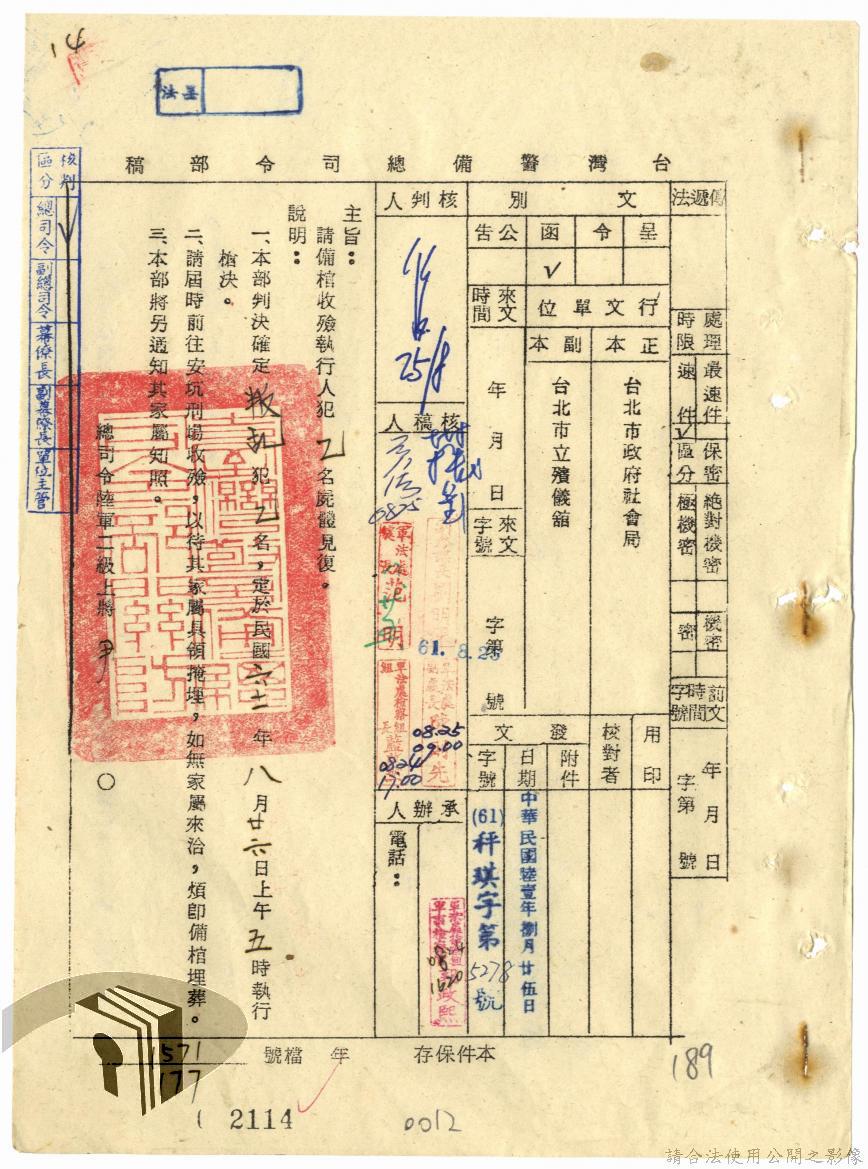 14
法 呈
台灣警備總司令部稿
傳遞法
處理時限
最速件
速件
✓
保密區分
絕對機密
極機密
機密
密
前文時間字號
年 月 日
字第 號
文別
呈
令
函
✓
公告
行文單位
正本
副本
台北市政府社會局
台北市立殯儀舘
來文時間
年 月 日
來文字號
字第 號
用印
校對者
發文
附件
日期
字號
中華民國陸壹年捌月廿伍日
(61)秤琪字第5278號
核判人
核稿人
0825
61. 8. 25
08.25
09.00
0824
17.00
承辦人
電話：
1620
主旨：
請備棺收殮執行人犯乙名屍體見復。
說明：
一、本部判決確定叛乱犯乙名，定於民國六十一年八月廿六日上午五時執行
槍決。
二、請屆時前往安坑刑場收殮，以待其家屬具領掩埋，如無家屬來洽，煩卽備棺埋葬。
三、本部將另通知其家屬知照。
總司令陸軍二級上將 尹 ○
核判區分
總司令
副總司令
幕僚長
副幕僚長
單位主管
本件保存 年 檔號
1571
177
2114
0012
189
請合法使用公開之影像